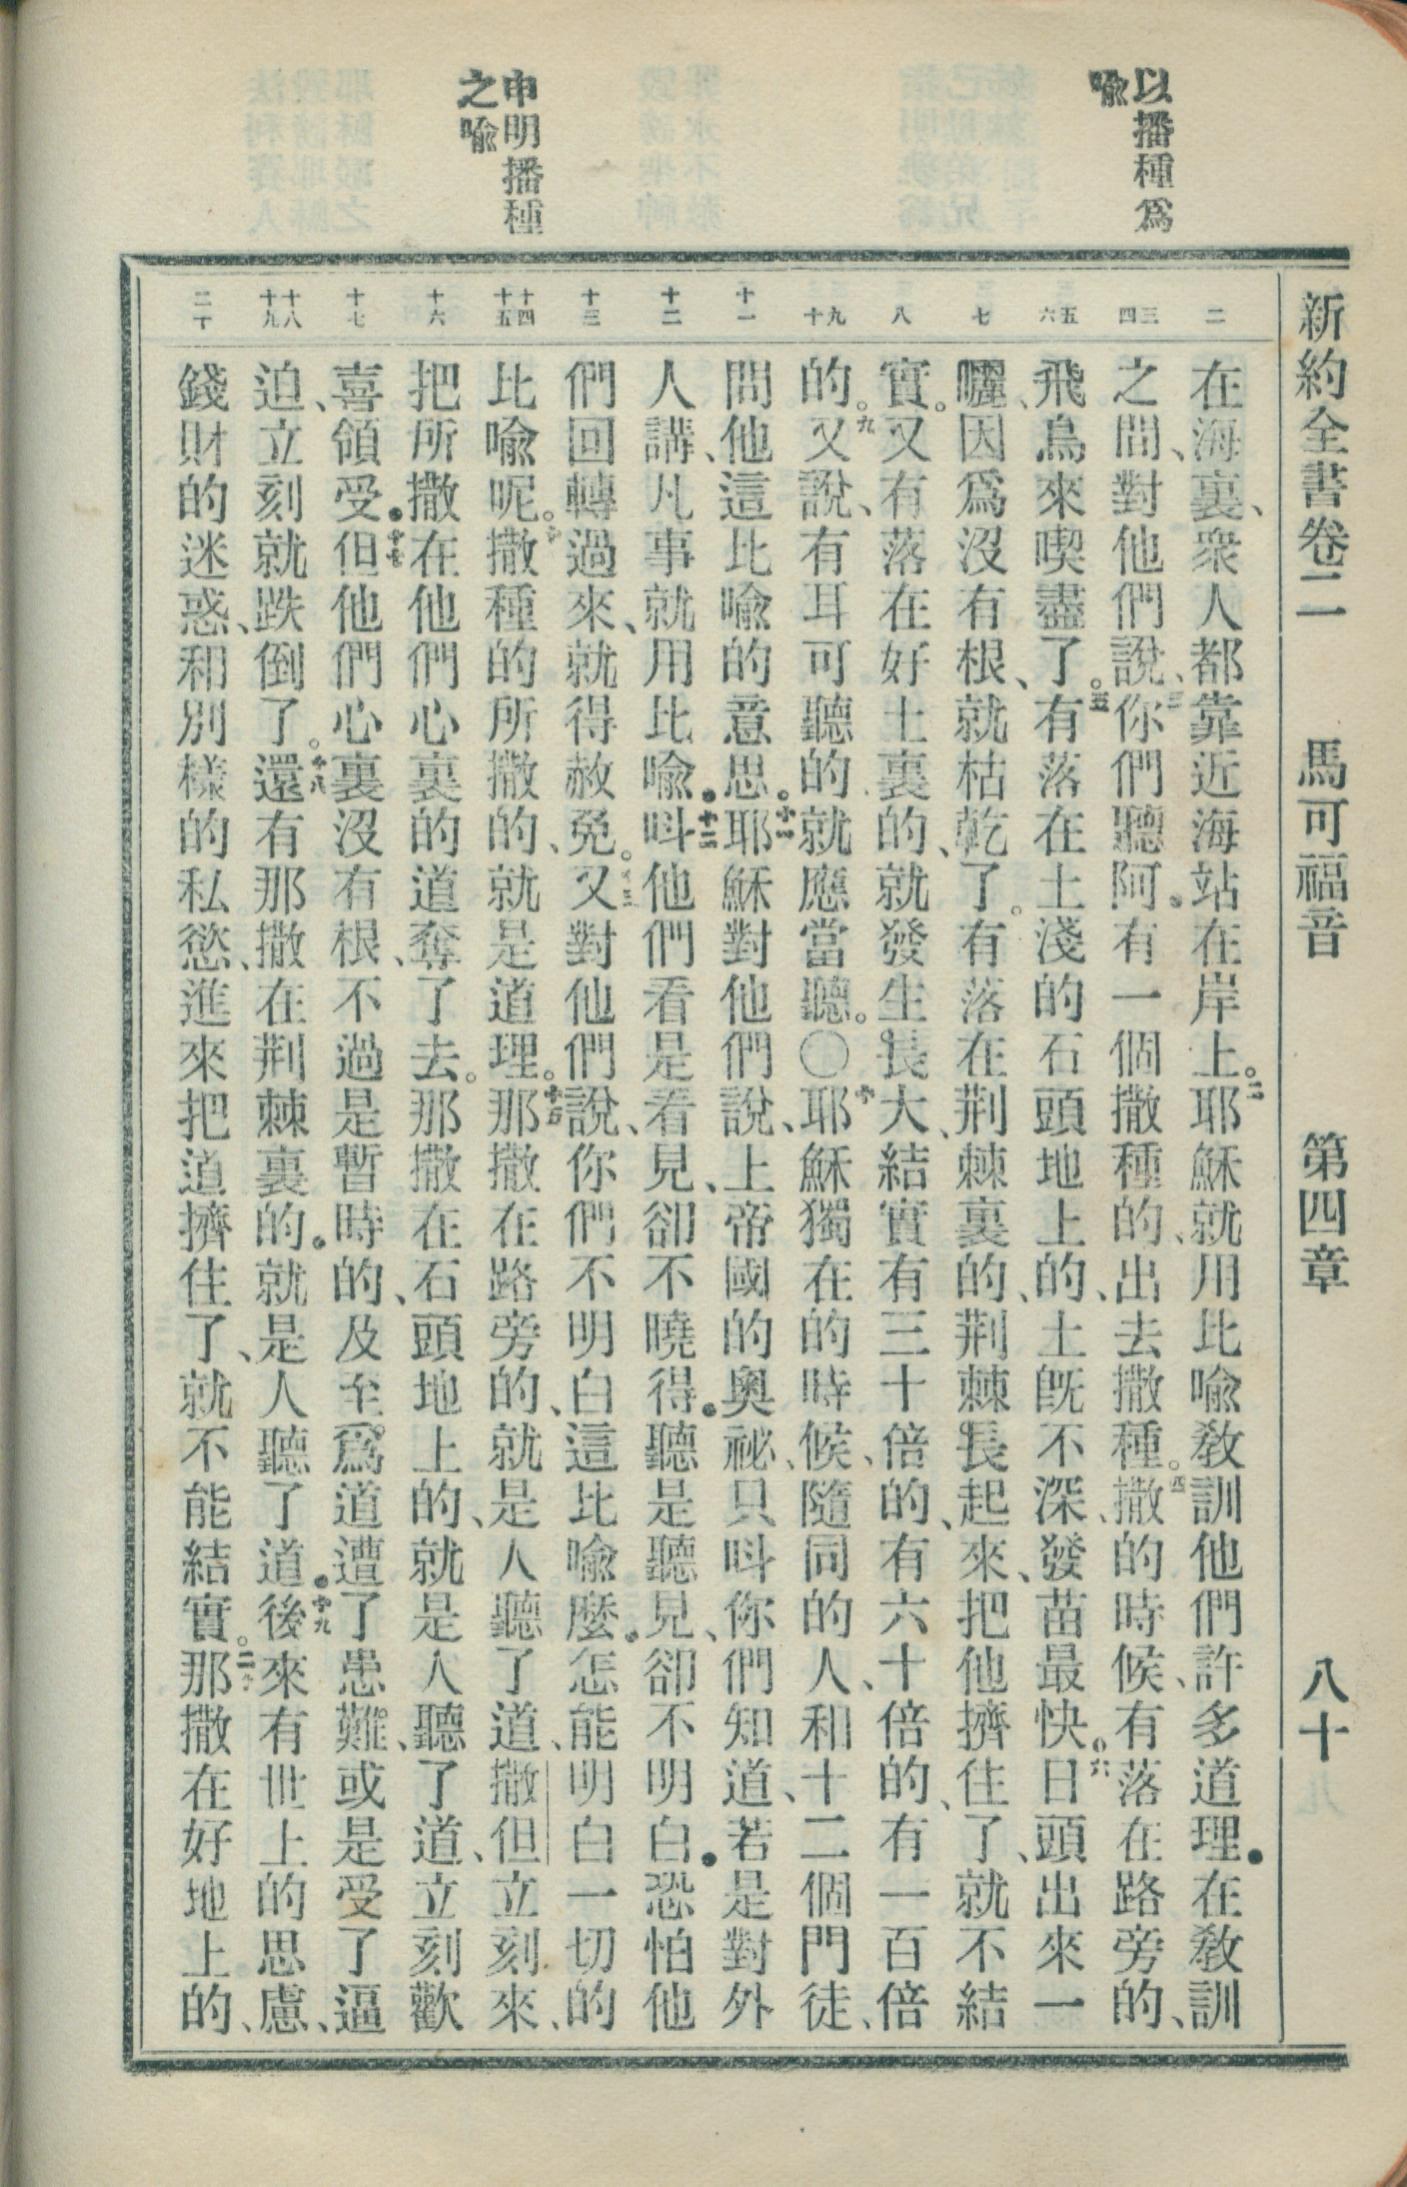 新約全書卷二 馬可福音 第四章 八十
以播種爲
喻
申明播種
之喻
二
三四
五六
七
八
九十
十一
十二
十三
十四十五
十六
十七
十八十九
二十
在海裏、衆人都靠近海站在岸上。二耶穌就用比喻敎訓他們許多道理.在敎訓
之間、對他們說、三你們聽阿.有一個撒種的、出去撒種。四撒的時候、有落在路旁的、
飛鳥來喫盡了。五有落在土淺的石頭地上的、土旣不深、發苗最快.六日頭出來一
曬、因爲沒有根、就枯乾了。有落在荆棘裏的、荆棘長起來、把他擠住了、就不結
實。又有落在好土裏的、就發生長大、結實有三十倍的、有六十倍的、有一百倍
的。九又說、有耳可聽的就應當聽。〇十耶穌獨在的時候、隨同的人、和十二個門徒、
問他這比喻的意思。十一耶穌對他們說、上帝國的奧祕、只呌你們知道、若是對外
人講、凡事就用比喻.十二呌他們看是看見、卻不曉得.聽是聽見、卻不明白.恐怕他
們回轉過來、就得赦免。十三又對他們說、你們不明白這比喻麼.怎能明白一切的
比喻呢。十四撒種的所撒的、就是道理。十五那撒在路旁的、就是人聽了道、撒但立刻來、
把所撒在他們心裏的道奪了去。那撒在石頭地上的、就是人聽了道、立刻歡
喜領受.十七但他們心裏沒有根、不過是暫時的、及至爲道遭了患難、或是受了逼
迫、立刻就跌倒了。十八還有那撒在荆棘裏的.就是人聽了道.十九後來有世上的思慮、
錢財的迷惑、和別樣的私慾、進來把道擠住了、就不能結實。二十那撒在好地上的、